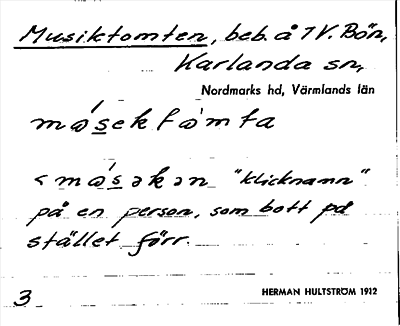 Musiktomten, beb. å TV. Bön,
Karlanda sn,
Nordmarks hd, Värmlands län
mǿsekta̋mta
< mǿsəkən "klicknamn"
på en person, som bott på
stället förr.
3
HERMAN HULTSTRÖM 1912